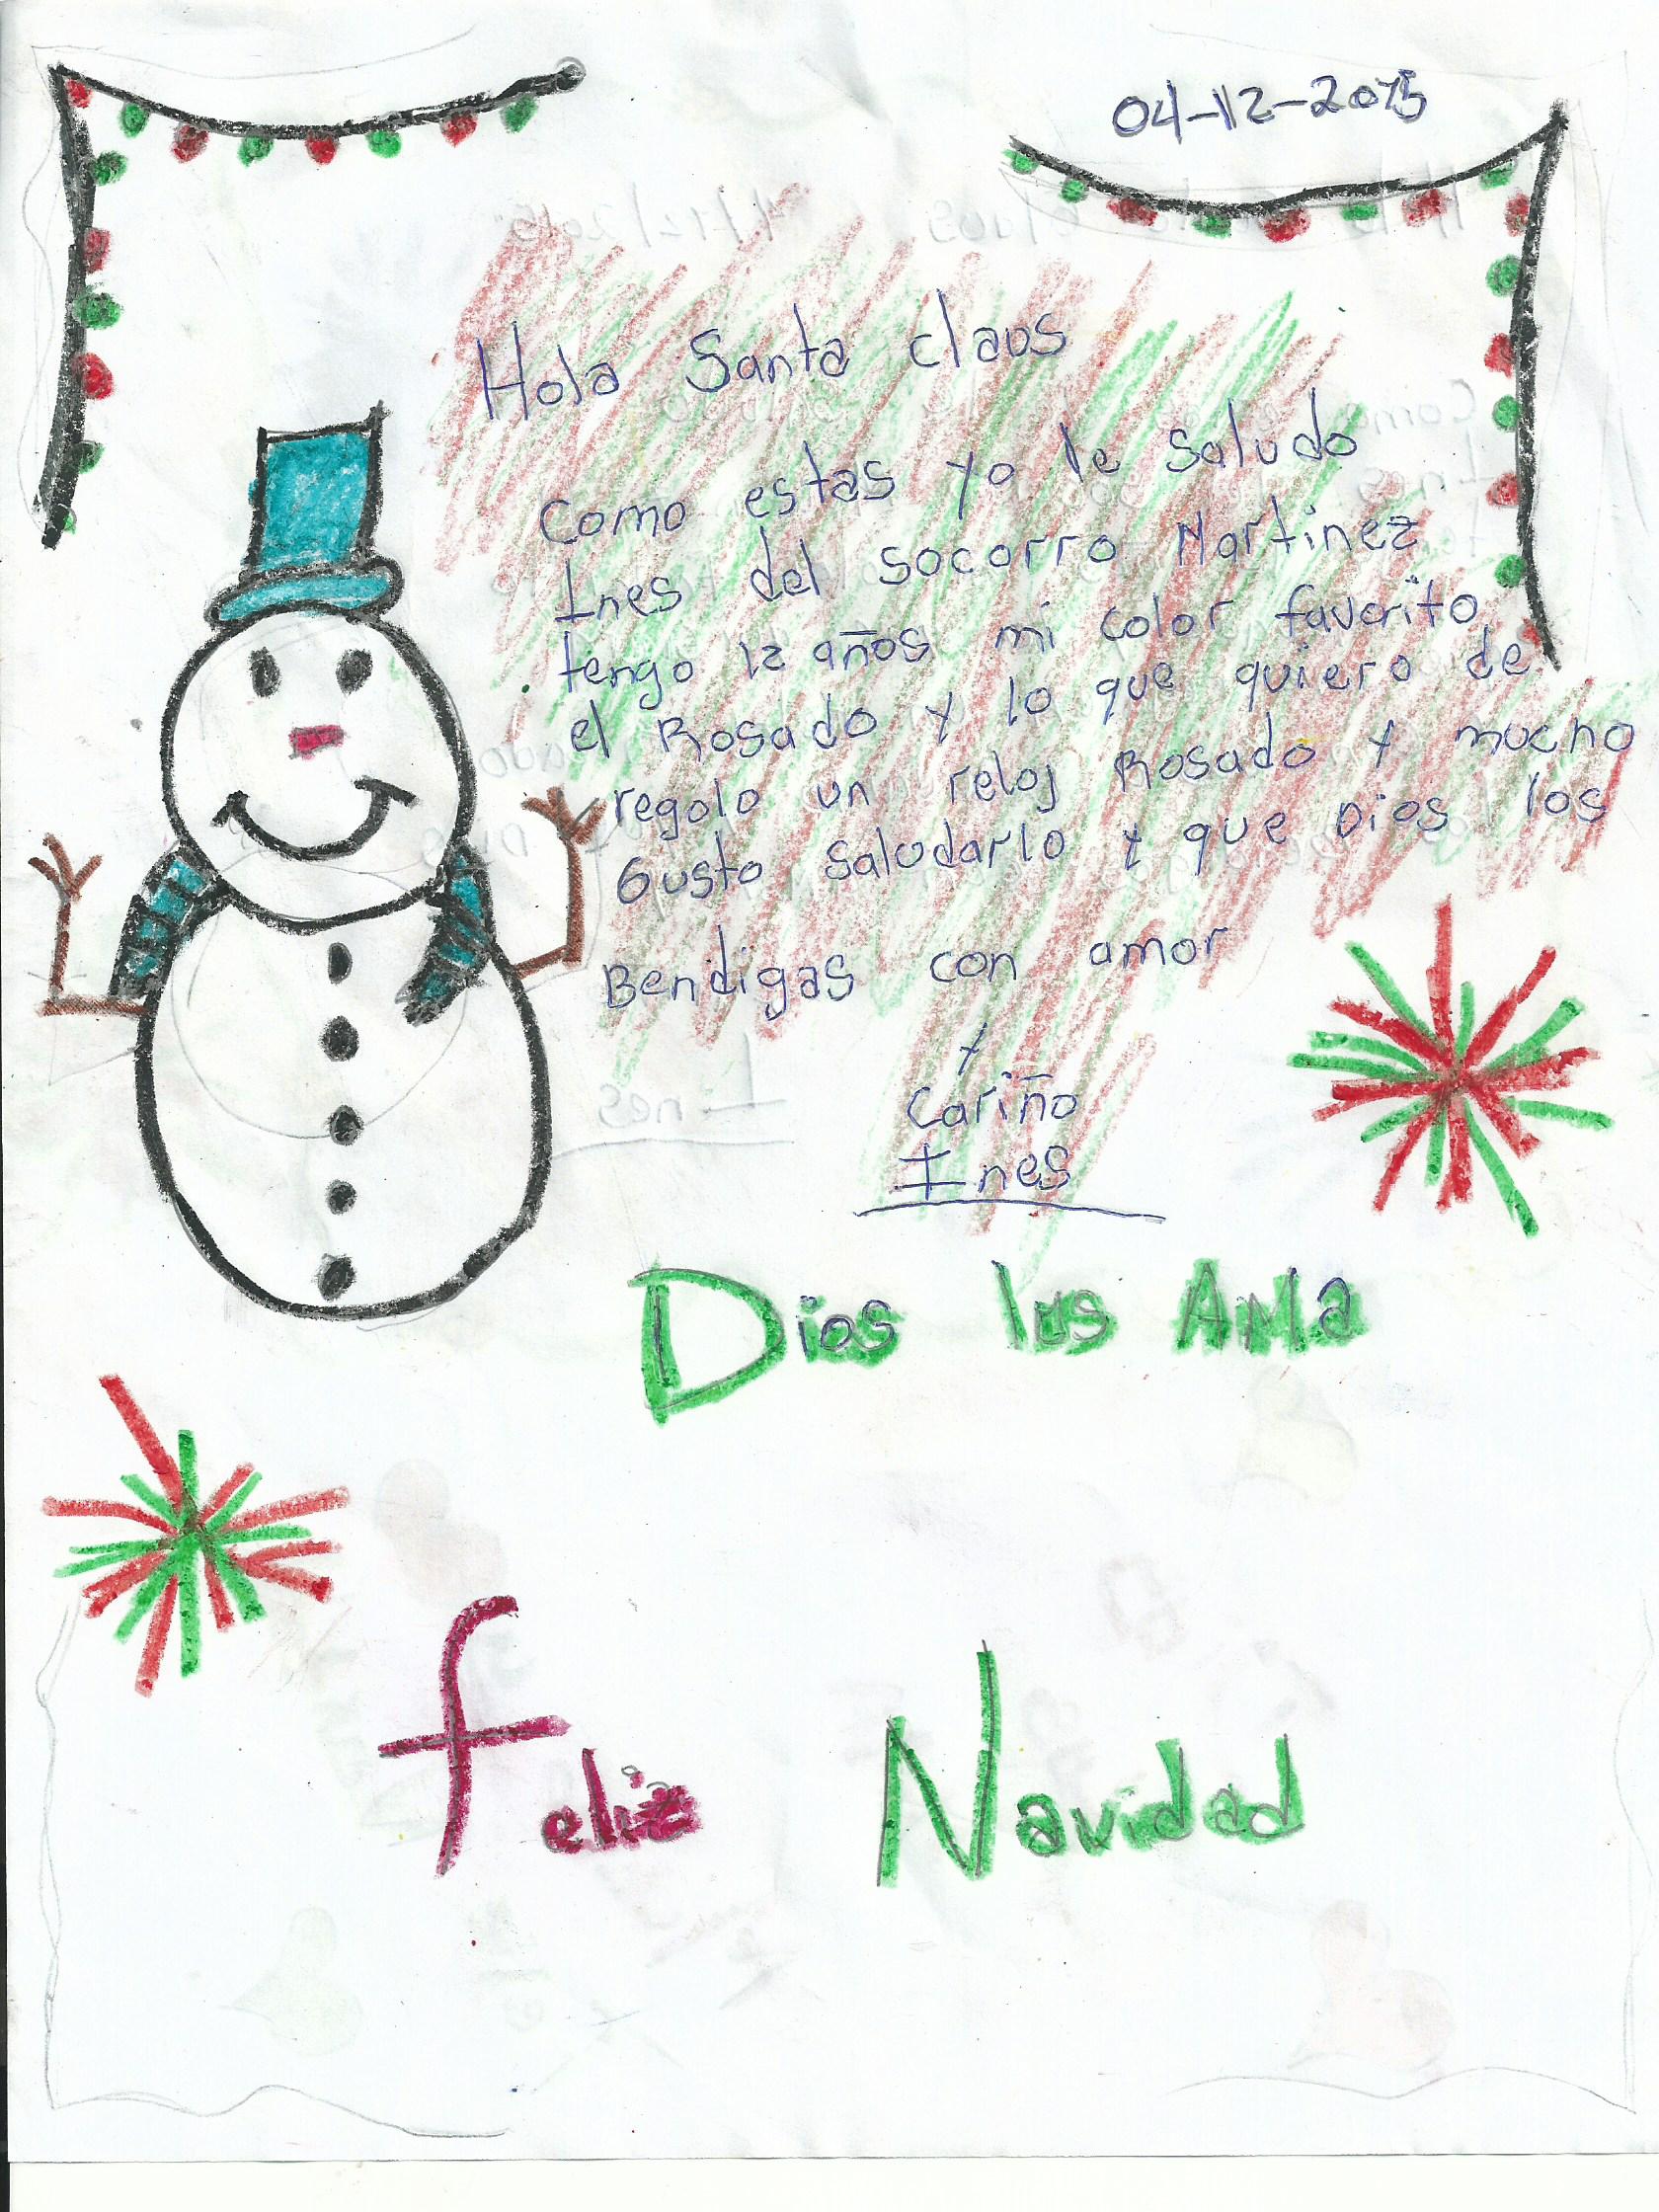 04-12-2015
Hola Santa claus
Como estas yo le saludo
Ines del socorro Martinez
tengo 12 años mi color favorito
el Rosado y lo que quiero de
regolo un reloj Rosado y mucho
Gusto saludarlo y que Dios los
Bendigas con amor
y
Cariño
Ines
Dios lus AMa
Feliz Navidad